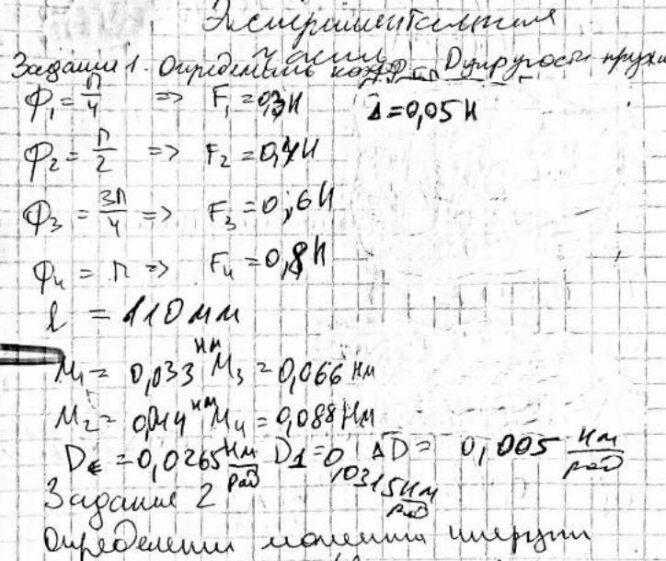 Экспериментальная
часть
Задание 1. Определить коэфф Dупругости пружи
φ₁ = П/4 => F₁ = 0,3 Н Δ = 0,05 Н
φ₂ = П/2 => F₂ = 0,4 Н
φ₃ = 3П/4 => F₃ = 0,6 Н
φ₄ = П => F₄ = 0,8 Н
l = 110 мм
M₁ = 0,033 нм M₃ = 0,066 Нм
M₂ = 0,044 нм M₄ = 0,088 Нм
D = 0,0265 Нм/рад D1 = 0,0315 Нм/рад ΔD = 0,005 Нм/рад
Задание 2
Определении момента инерции